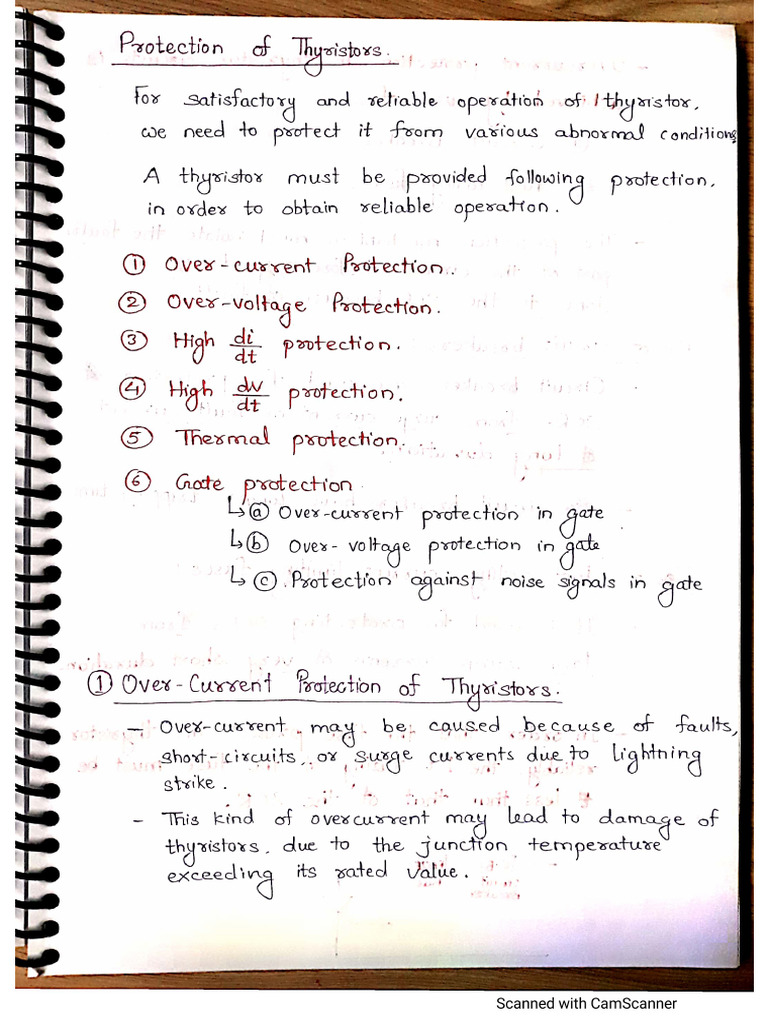 Protection of Thyristors.
For satisfactory and reliable operation of thyristor,
we need to protect it from various abnormal conditions
A thyristor must be provided following protection,
in order to obtain reliable operation.
① Over-current Protection.
② Over-voltage Protection.
③ High di/dt protection.
④ High dv/dt protection.
⑤ Thermal protection.
⑥ Gate protection
↳ ⓐ Over-current protection in gate
↳ ⓑ Over-voltage protection in gate
↳ ⓒ Protection against noise signals in gate
① Over-Current Protection of Thyristors.
- Over-current may be caused because of faults,
short-circuits, or surge currents due to lightning
strike.
- This kind of overcurrent may lead to damage of
thyristors, due to the junction temperature
exceeding its rated value.
Scanned with CamScanner